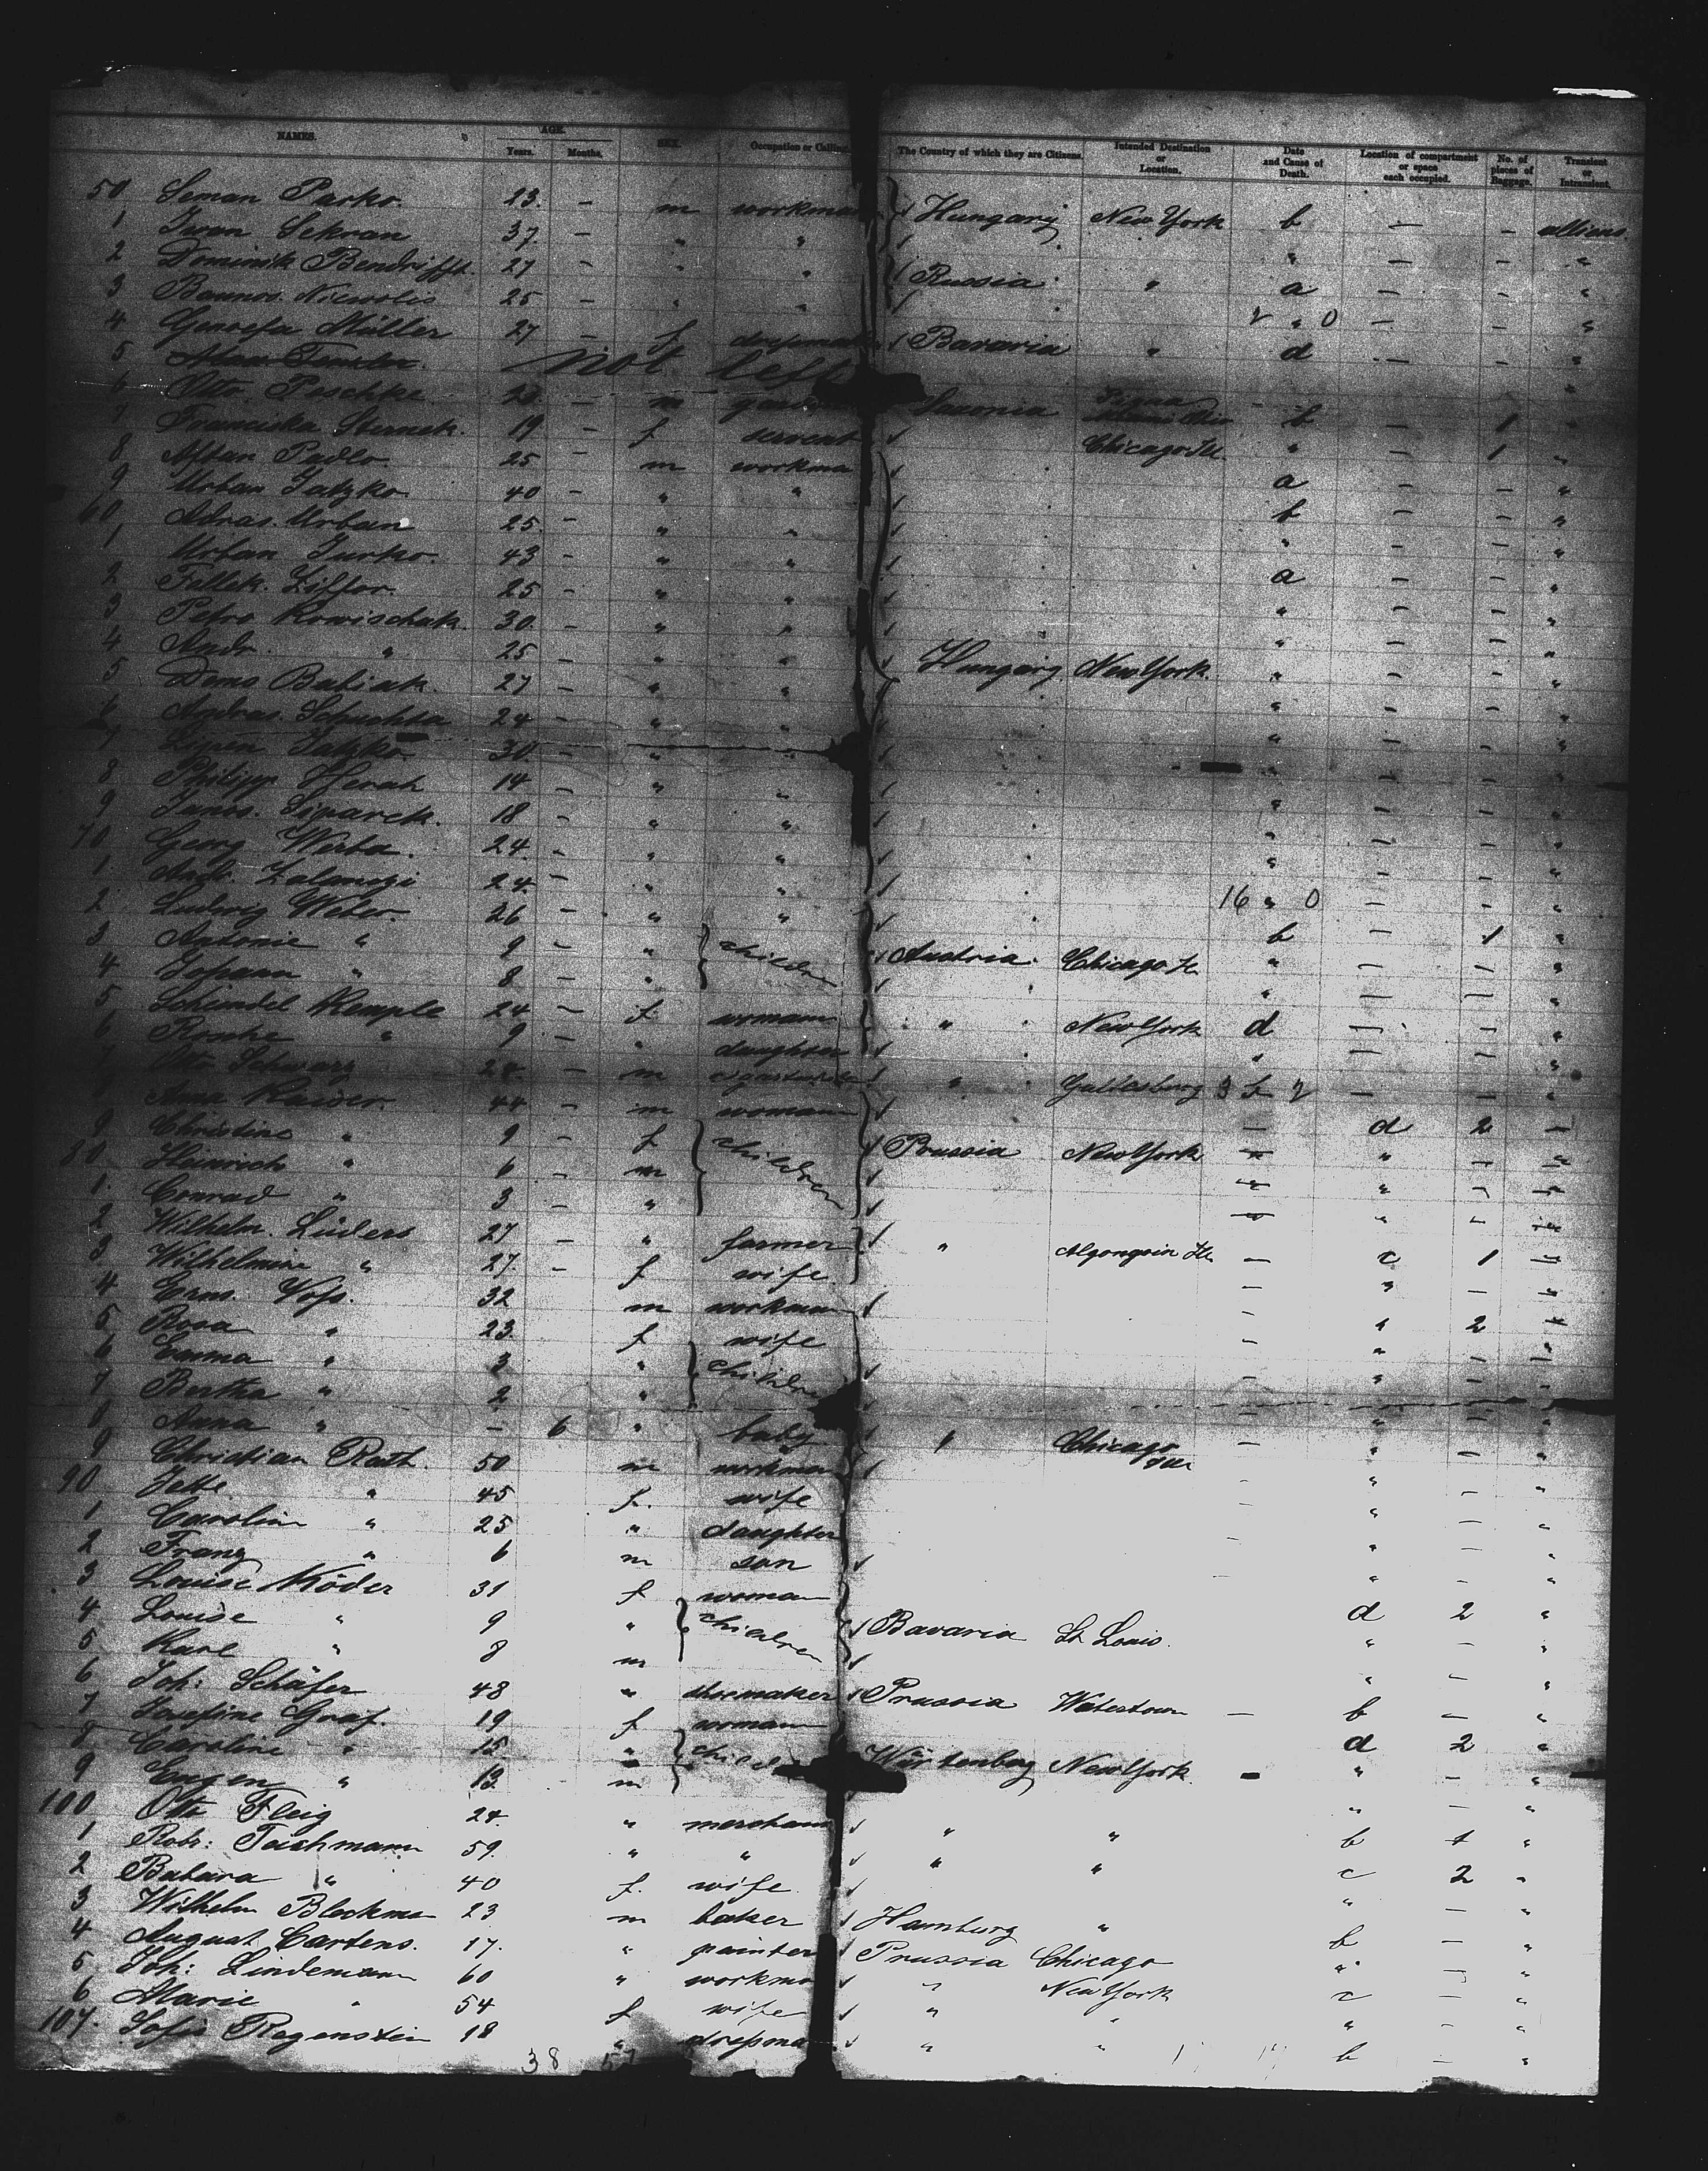 NAMES. AGE. Years. Months. SEX. Occupation or Calling. The Country of which they are Citizens. Intended Destination or Location. Date and Cause of Death. Location of compartment or space each occupied. No. of pieces of Baggage. Transient or Intransient.
50 Seman Parko. 23. - m workman Hungary New York b - -
1 Iwan Sekran 37 - " " " - - "
2 Dominik Bendrifft. 27 - " " Russia " a - - "
3 25 - " " " 0 - - "
4 Genoefa Müller 27 - f Bavaria " d - - "
5 not left
6 Otto Peschke m Saxonia b - 1
7 Franciska Sternek. 19 - f servant Chicago Ill. " - 1 "
8 Affan Padlo. 25 - m workman a - - "
9 Urban Jatzko 40 - " " b - - "
60 Adras. Urban 25 - " " " - - "
1 Urban Jurko. 43 - " " a - - "
2 Fellek. Ziffor. 25 - " " " - - "
3 Petro Kowischak. 30. - " " " - - "
4 Andr. " 25 - " " Hungary New York. " - - "
5 Dems Babiak. 27 - " " " - - "
6 Andras. Schuchta 24 - " " " - - "
7 Jatzko. 30. - " "
8 Philipp Herah 14 - " " " - - "
9 Janos. Siparek. 18 - " " " - - "
70 Georg Werba. 24. - " " " - - "
1. 24. - " " 16 " 0 - - "
2 Ludwig Weber. 26 - " " b - 1 "
3 Antonie " 9 - " children Austria. Chicago Ill " - - "
4 Johann " 8 - " " - - "
5 Schindel Kemple 24 - f. woman " New York d - - "
6 " 9 - " daughter " - - "
7 Otto Schwarz 28. - m " 3 b 2 - - "
8 Anna Kaiser. 44 - m woman - d 2 -
9 Christine " 9 - f children Prussia New York - " - -
80 Heinrich " 6 - m - " - -
1. Conrad " 3 - " - " - -
2 Wilhelm. Lüders 27 - " farmer " Algonquin Ill. - c 1 -
3 Wilhelmine " 27 - f wife - " - -
4 Erns. Voss. 32 m workman - " 2 "
5 Rosa " 23. f wife - " - -
6 Emma " 3 " children - " - "
7 Bertha " 2 " - " - "
8 Anna " - 6 " baby " Chicago Ill - " - "
9 Christian Rath. 50 m workman - " - "
90 Jette " 45 f. wife - " - "
1 Carolin " 25 " daughter - " - "
2 Franz " 6 m son - " - "
3 Louise Köder 31 f woman d 2 "
4 Louise " 9 " children Bavaria St Louis. " - "
5 Karl " 8 m " - "
6 Joh: Schäfer 48 " shoemaker Prussia Watertown - b - "
7 Josefine Graf. 19 f woman d 2 "
8 Caroline " 15 " children Würtenberg New York. - " - "
9 Eugen " 13 m " - "
100 Otto Fleig 24. " merchant " " b 1 "
1 Robr: Teichmann 59. " " " " c 2 "
2 Babara " 40 f. wife " - "
3 Wilhelm Bleckman 23 m baker Hamburg " b - "
4 August Cartens. 17. " painter Prussia Chicago " - "
5 Joh: Lindemann 60 " workman " New York c - "
6 Marie " 54 f wife " " " - "
107. Sofie Regenstein 18 " " " b - "
38 57